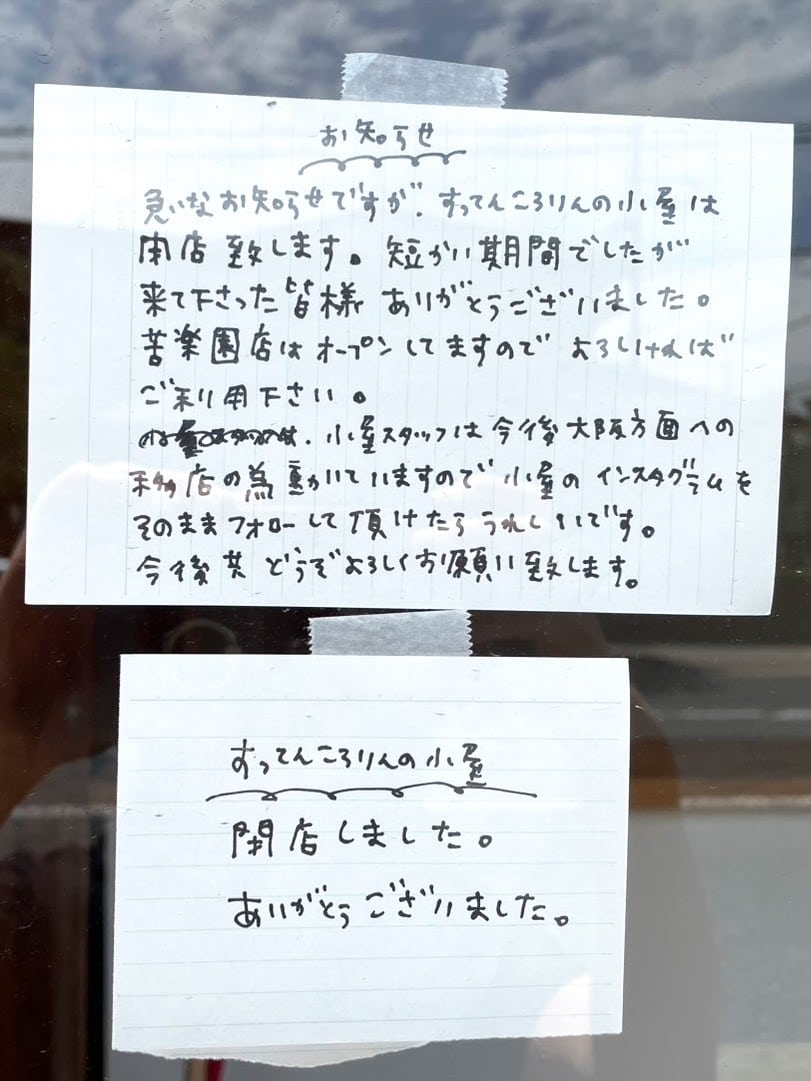 お知らせ
急いなお知らせですが、すってんころりんの小屋は
閉店致します。短かい期間でしたが
来て下さった皆様 ありがとうございました。
苦楽園店はオープンしてますので よろしければ
ご利用下さい。
小屋スタッフは今後大阪方面への
移店の為動いていますので小屋のインスタグラムを
そのままフォローして頂けたらうれしいです。
今後共 どうぞよろしくお願い致します。
すってんころりんの小屋
閉店しました。
ありがとうございました。